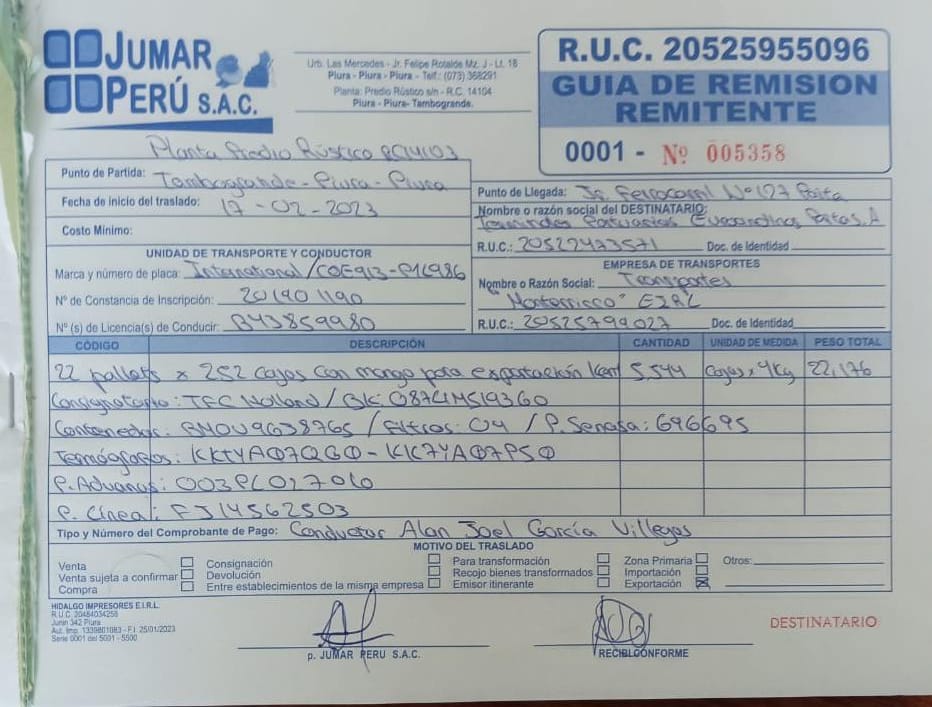 JUMAR PERÚ S.A.C.
Urb. Las Mercedes - Jr. Felipe Rotalde Mz. J - Lt. 18
Piura - Piura - Piura - Telf.: (073) 368291
Planta: Predio Rústico s/n - R.C. 14104
Piura - Piura- Tambogrande.
R.U.C. 20525955096
GUIA DE REMISION
REMITENTE
0001 - Nº 005358
Planta Predio Rústico RC14103
Punto de Partida: Tambogrande - Piura - Piura
Fecha de inicio del traslado: 17 - 02 - 2023
Costo Mínimo:
Punto de Llegada: Jr. Ferrocarril Nº 127 Paita
Nombre o razón social del DESTINATARIO:
Terminales Portuarios Euroandinos Paita S.A
R.U.C.: 20522473571 Doc. de Identidad
UNIDAD DE TRANSPORTE Y CONDUCTOR
Marca y número de placa: International / C0E913 - P1L986
Nº de Constancia de Inscripción: 201901190
Nº (s) de Licencia(s) de Conducir: B43859980
EMPRESA DE TRANSPORTES
Nombre o Razón Social: Transportes
"Monterricco" EIRL
R.U.C.: 20525799027 Doc. de Identidad
CÓDIGO DESCRIPCIÓN CANTIDAD UNIDAD DE MEDIDA PESO TOTAL
22 pallets x 252 cajas con mango para exportación Kent 5,544 Cajas x 4Kg 22,176
Consignatario: TFC Holland / BK: 087LM519360
Contenedor: BMOU9638765 / Filtros: 04 / P. Senasa: 696695
Termógrafos: KKTYA07QG0 - KK7YA07PS0
P. Aduanas: 003PL027010
P. Línea: FJ14562503
Tipo y Número del Comprobante de Pago: Conductor Alan Joel García Villegas
MOTIVO DEL TRASLADO
Venta
Venta sujeta a confirmar
Compra
Consignación
Devolución
Entre establecimientos de la misma empresa
Para transformación
Recojo bienes transformados
Emisor itinerante
Zona Primaria
Importación
Exportación X
Otros:
HIDALGO IMPRESORES E.I.R.L.
R.U.C. 20484034258
Junin 342 Piura
Aut. Imp. 1339801083 - F.I. 25/01/2023
Serie 0001 del 5001 - 5500
p. JUMAR PERU S.A.C.
RECIBI CONFORME
DESTINATARIO